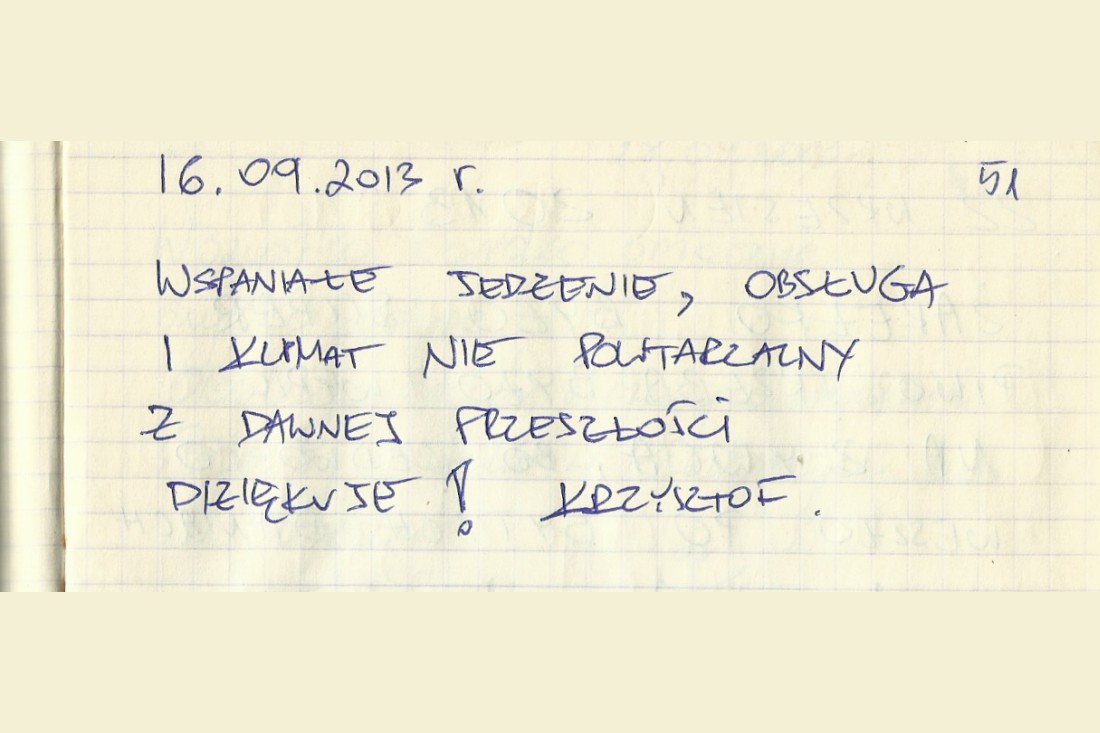 16.09.2013 r. 51
WSPANIAŁE JEDZENIE, OBSŁUGA
I KLIMAT NIE POWTARZALNY
Z DAWNEJ PRZESZŁOŚCI
DZIĘKUJE! KRZYSZTOF.